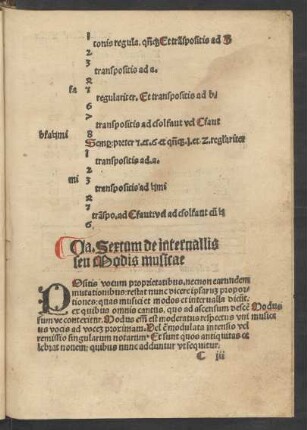 1
tonis regula. qñqꝫ Et trãspositis ad
2
3
2 transpositis ad a.
1
fa
7 regulariter. Et transpositis ad b/
6
> transpositis ad csolfaut vel Cfaut
8
bfaʮmi
Semꝑ: preter 1. et. 6 et qñqꝫ. et. 2. regl'riter
1 transpositis ad. a.
2
mi
3 transpositis ad ʮmi
2
7
6 trãspo. ad Cfaut vel ad csolfaut cũ
Ca. Sextum de interuallis
seu Modis musicae
POsitis vocum proprietatibus, necnon earundem
mutationibus: restat nunc dicere ipsarum propor
tiones: quas musici et modos et interualla dicũt.
ex quibus omnis cantus, quo ad ascensum
sum ve contexitur. Modus eñi est moderatus respectus vni
us vocis ad vocem proximam. Vel emodulata intensio vel
remissio singularum notarum. Et sunt quos antiquitas ce
lebrat notem: quibus nunc adduntur vt sequitur.
Modus
musicæ
C iij